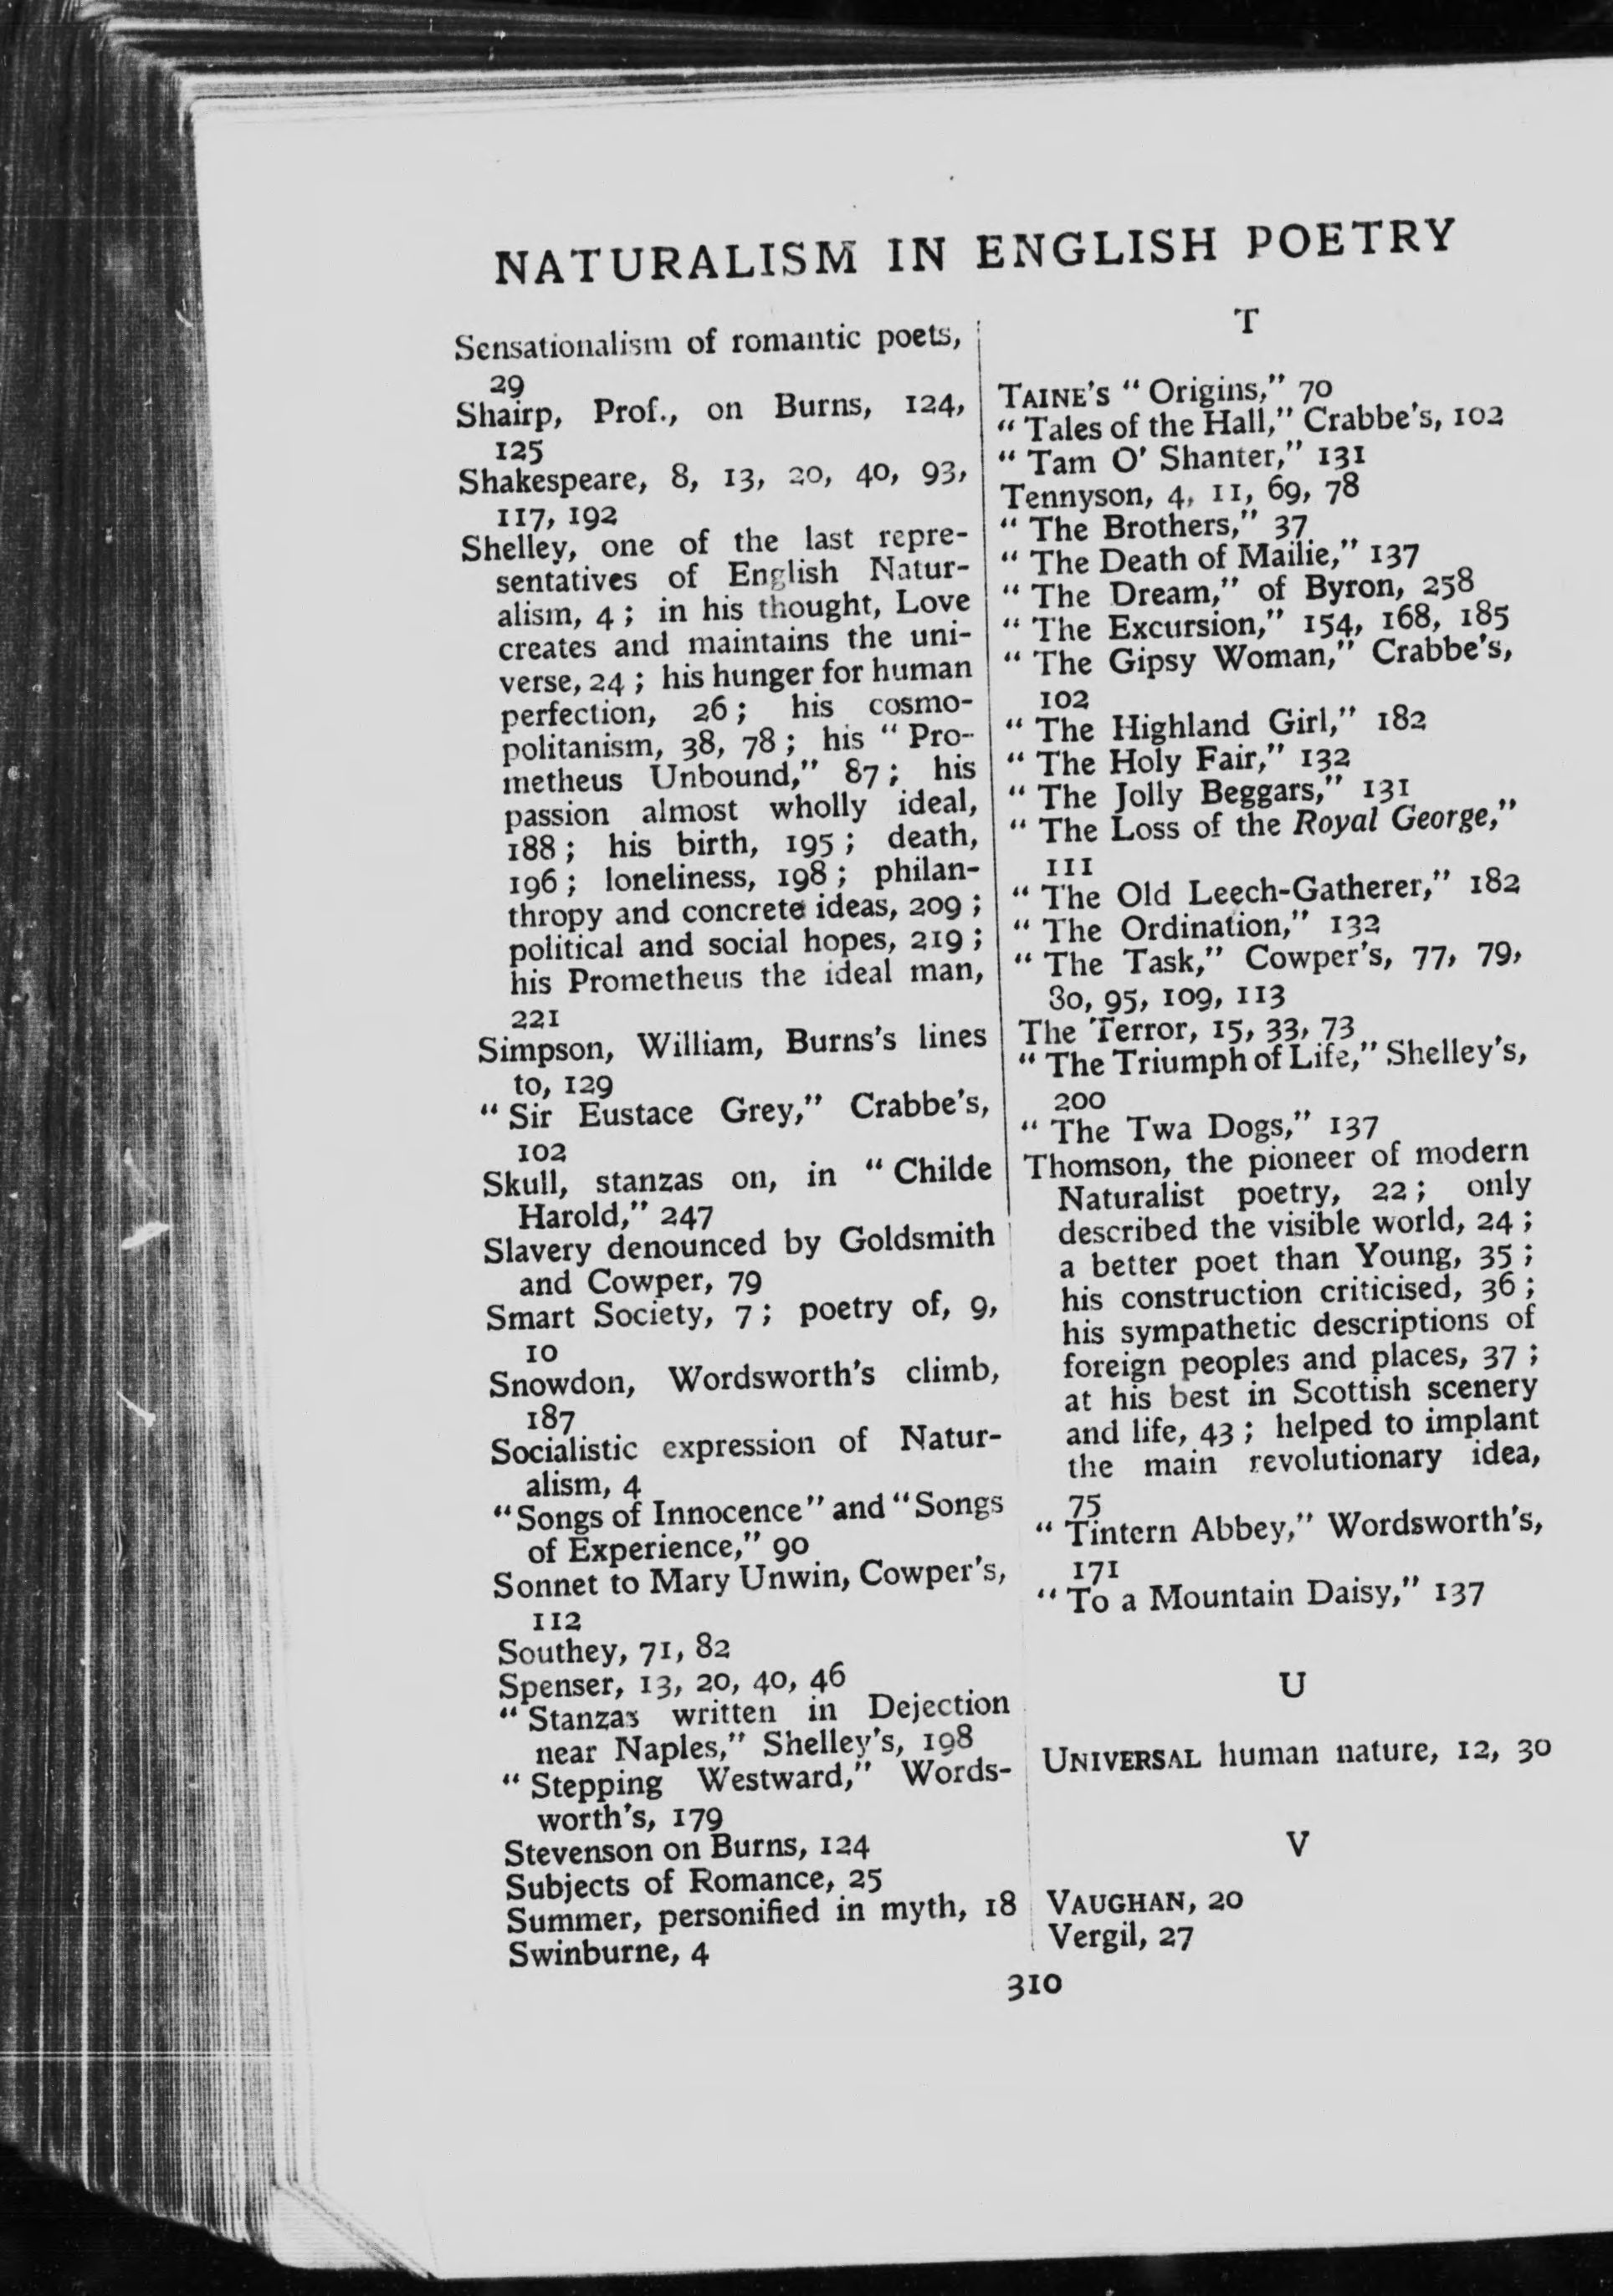 NATURALISM IN ENGLISH POETRY
Sensationalism of romantic poets,
29
Shairp, Prof., on Burns, 124,
125
Shakespeare, 8, 13, 20, 40, 93,
117, 192
Shelley, one of the last repre-
sentatives of English Natur-
alism, 4 ; in his thought, Love
creates and maintains the uni-
verse, 24 ; his hunger for human
perfection, 26 ; his cosmo-
politanism, 38, 78 ; his “ Pro-
metheus Unbound,” 87 ; his
passion almost wholly ideal,
188 ; his birth, 195 ; death,
196 ; loneliness, 198 ; philan-
thropy and concrete ideas, 209 ;
political and social hopes, 219 ;
his Prometheus the ideal man,
221
Simpson, William, Burns's lines
to, 129
“ Sir Eustace Grey,” Crabbe's,
102
Skull, stanzas on, in “ Childe
Harold,” 247
Slavery denounced by Goldsmith
and Cowper, 79
Smart Society, 7 ; poetry of, 9,
10
Snowdon, Wordsworth's climb,
187
Socialistic expression of Natur-
alism, 4
“Songs of Innocence” and “Songs
of Experience,” 90
Sonnet to Mary Unwin, Cowper's,
112
Southey, 71, 82
Spenser, 13, 20, 40, 46
“ Stanzas written in Dejection
near Naples,” Shelley's, 198
“ Stepping Westward,” Words-
worth's, 179
Stevenson on Burns, 124
Subjects of Romance, 25
Summer, personified in myth, 18
Swinburne, 4
T
TAINE'S “ Origins,” 70
“ Tales of the Hall,” Crabbe's, 102
“ Tam O' Shanter,” 131
Tennyson, 4, 11, 69, 78
“ The Brothers,” 37
“ The Death of Mailie,” 137
“ The Dream,” of Byron, 258
“ The Excursion,” 154, 168, 185
“ The Gipsy Woman,” Crabbe's,
102
“ The Highland Girl,” 182
“ The Holy Fair,” 132
“ The Jolly Beggars,” 131
“ The Loss of the Royal George,”
111
“ The Old Leech-Gatherer,” 182
“ The Ordination,” 132
“ The Task,” Cowper's, 77, 79,
80, 95, 109, 113
The Terror, 15, 33, 73
“ The Triumph of Life,” Shelley's,
200
“ The Twa Dogs,” 137
Thomson, the pioneer of modern
Naturalist poetry, 22 ; only
described the visible world, 24 ;
a better poet than Young, 35 ;
his construction criticised, 36 ;
his sympathetic descriptions of
foreign peoples and places, 37 ;
at his best in Scottish scenery
and life, 43 ; helped to implant
the main revolutionary idea,
75
“ Tintern Abbey,” Wordsworth's,
171
“ To a Mountain Daisy,” 137
U
UNIVERSAL human nature, 12, 30
V
VAUGHAN, 20
Vergil, 27
310